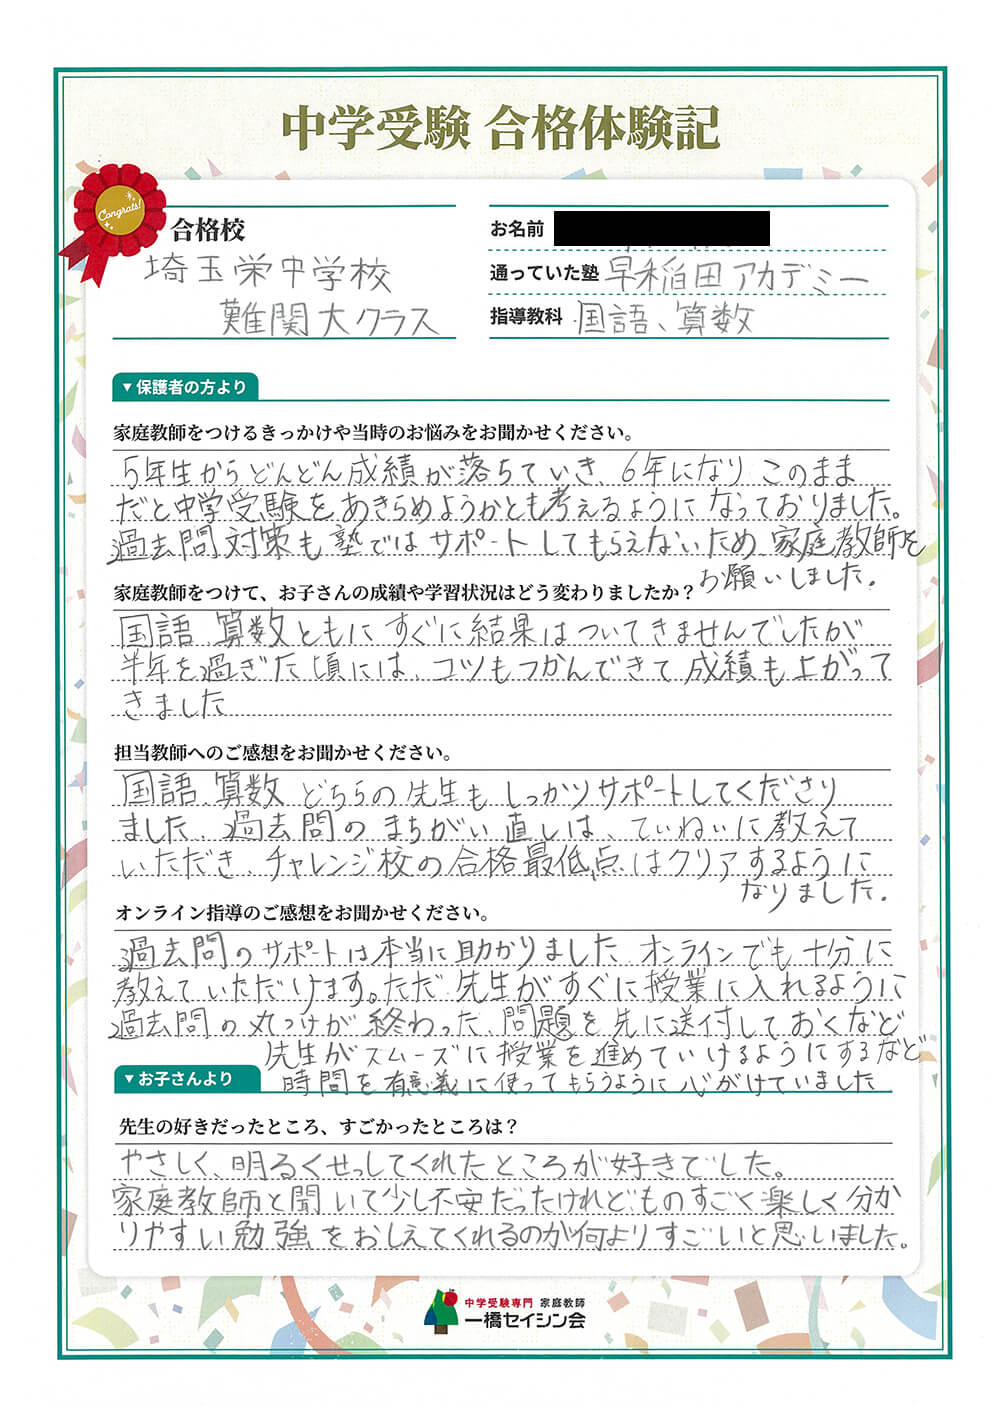 中学受験 合格体験記
Congrats!
合格校
埼玉栄中学校
難関大クラス
お名前
通っていた塾 早稲田アカデミー
指導教科 国語、算数
▼保護者の方より
家庭教師をつけるきっかけや当時のお悩みをお聞かせください。
5年生からどんどん成績が落ちていき、6年になり このまま
だと中学受験をあきらめようかとも考えるようになっておりました。
過去問対策も塾ではサポートしてもらえないため 家庭教師を
お願いしました。
家庭教師をつけて、お子さんの成績や学習状況はどう変わりましたか?
国語、算数ともにすぐに結果はついてきませんでしたが
半年を過ぎた頃には、コツもつかんできて成績も上がって
きました
担当教師へのご感想をお聞かせください。
国語、算数 どちらの先生も しっかりサポートしてくださり
ました。過去問のまちがい直しは、ていねいに教えて
いただき、チャレンジ校の合格最低点はクリアするように
なりました。
オンライン指導のご感想をお聞かせください。
過去問のサポートは本当に助かりました オンラインでも十分に
教えていただけます。ただ先生がすぐに授業に入れるように
過去問の丸つけが終わった、問題を先に送付しておくなど
先生がスムーズに授業を進めていけるようにするなど
時間を有意義に使ってもらうように心がけていました
▼お子さんより
先生の好きだったところ、すごかったところは?
やさしく、明るくせっしてくれたところが好きでした。
家庭教師と聞いて少し不安だったけれど、ものすごく楽しく分か
りやすい勉強をおしえてくれるのが何よりすごいと思いました。
中学受験専門 家庭教師
一橋セイシン会